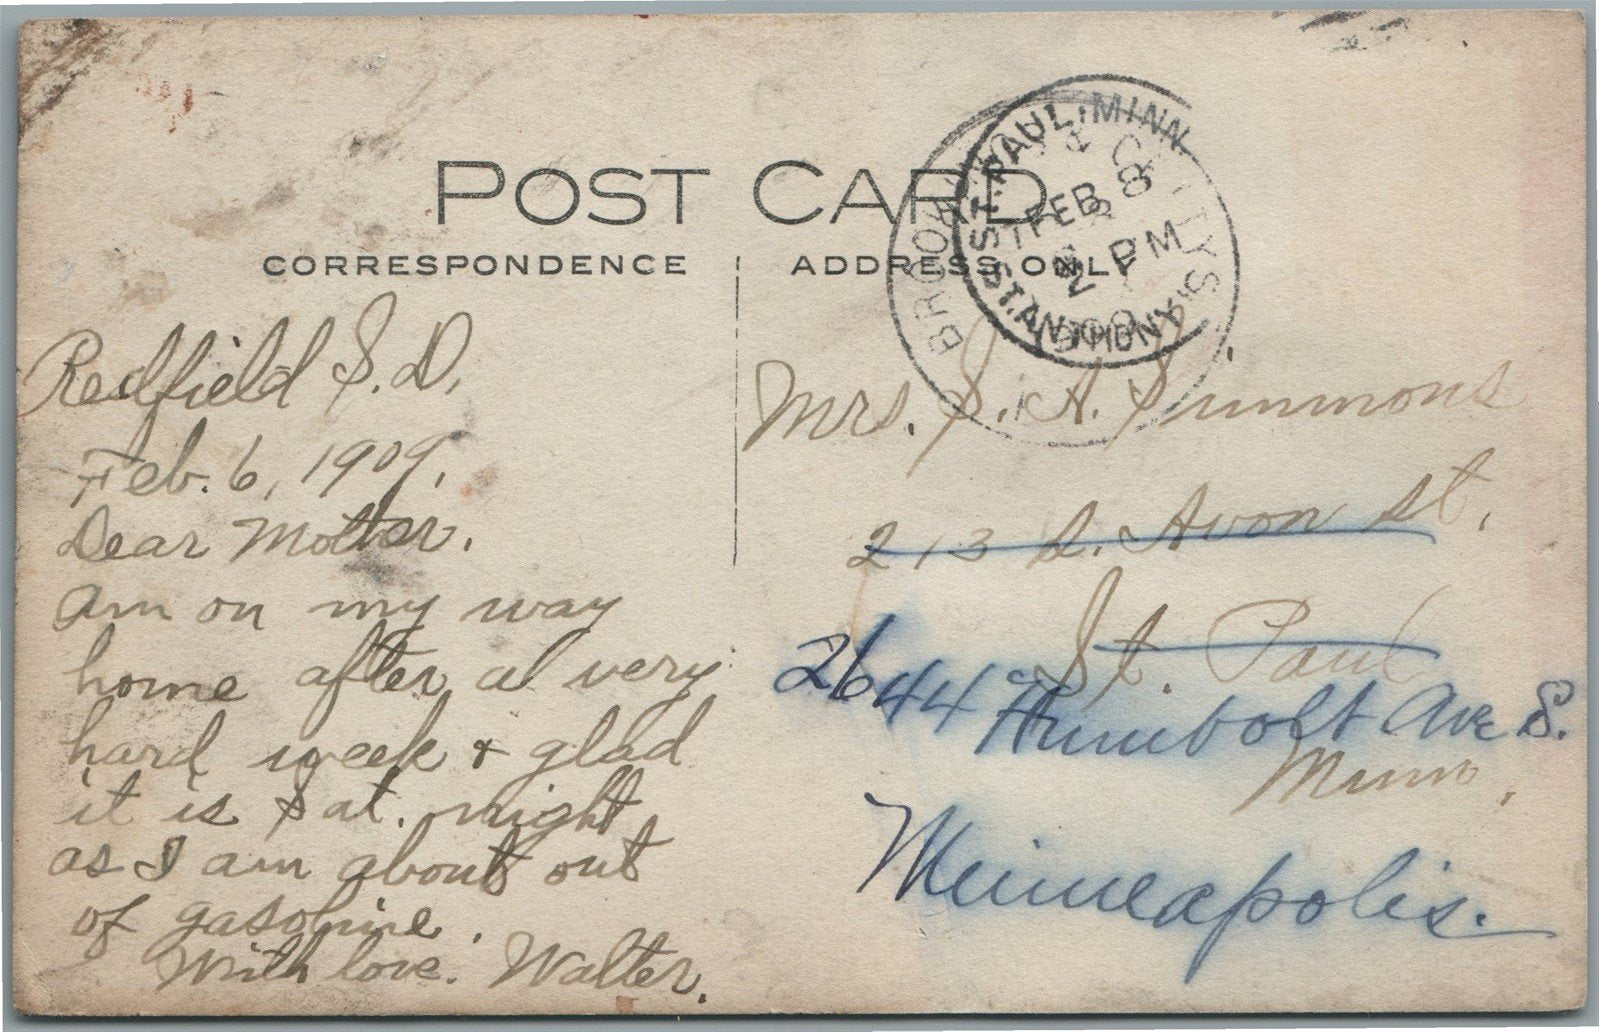 POST CARD
CORRESPONDENCE
ADDRESS ONLY
ST. PAUL. MINN
FEB 8
2 PM
ST. ANTHONY
BROOK
Redfield S.D.
Feb. 6, 1909.
Dear Mother.
Am on my way
home after a very
hard week & glad
it is Sat. night
as I am about out
of gasoline.
With love. Walter.
Mrs. S. A. Simmons
213 S. Avon St.
St. Paul
2644 Humbolt Ave S.
Minn.
Minneapolis.